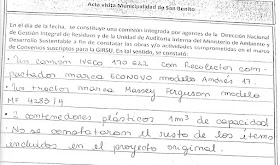 Acta visita Municipalidad de San Benito
En el día de la fecha, se constituye una comisión integrada por agentes de la Dirección Nacional
de Gestión Integral de Residuos y de la Unidad de Auditoría Interna del Ministerio de Ambiente y
Desarrollo Sustentable a fin de constatar las obras y/o actividades comprometidas en el marco
de Convenios suscriptos para la GIRSU. En tal sentido, se constató:
• Un camión IVECO 170E22 con Recolector com-
pactador marca ECONOVO modelo Andrés 17
• Un tractor marca Massey Ferguson modelo
MF 4289/4
• 2 contenedores plásticos 1m3 de capacidad
No se constataron el resto de los ítems
incluidos en el proyecto original.